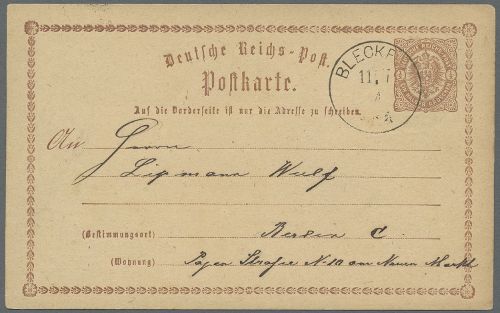 Deutsche Reichs-Post.
Postkarte.
Auf die Vorderseite ist nur die Adresse zu schreiben.
BLECKE
11 7
An Herrn
Lipmann Wulf
(Bestimmungsort) Berlin C.
(Wohnung) Papen Straße N. 10 am Neuen Markt